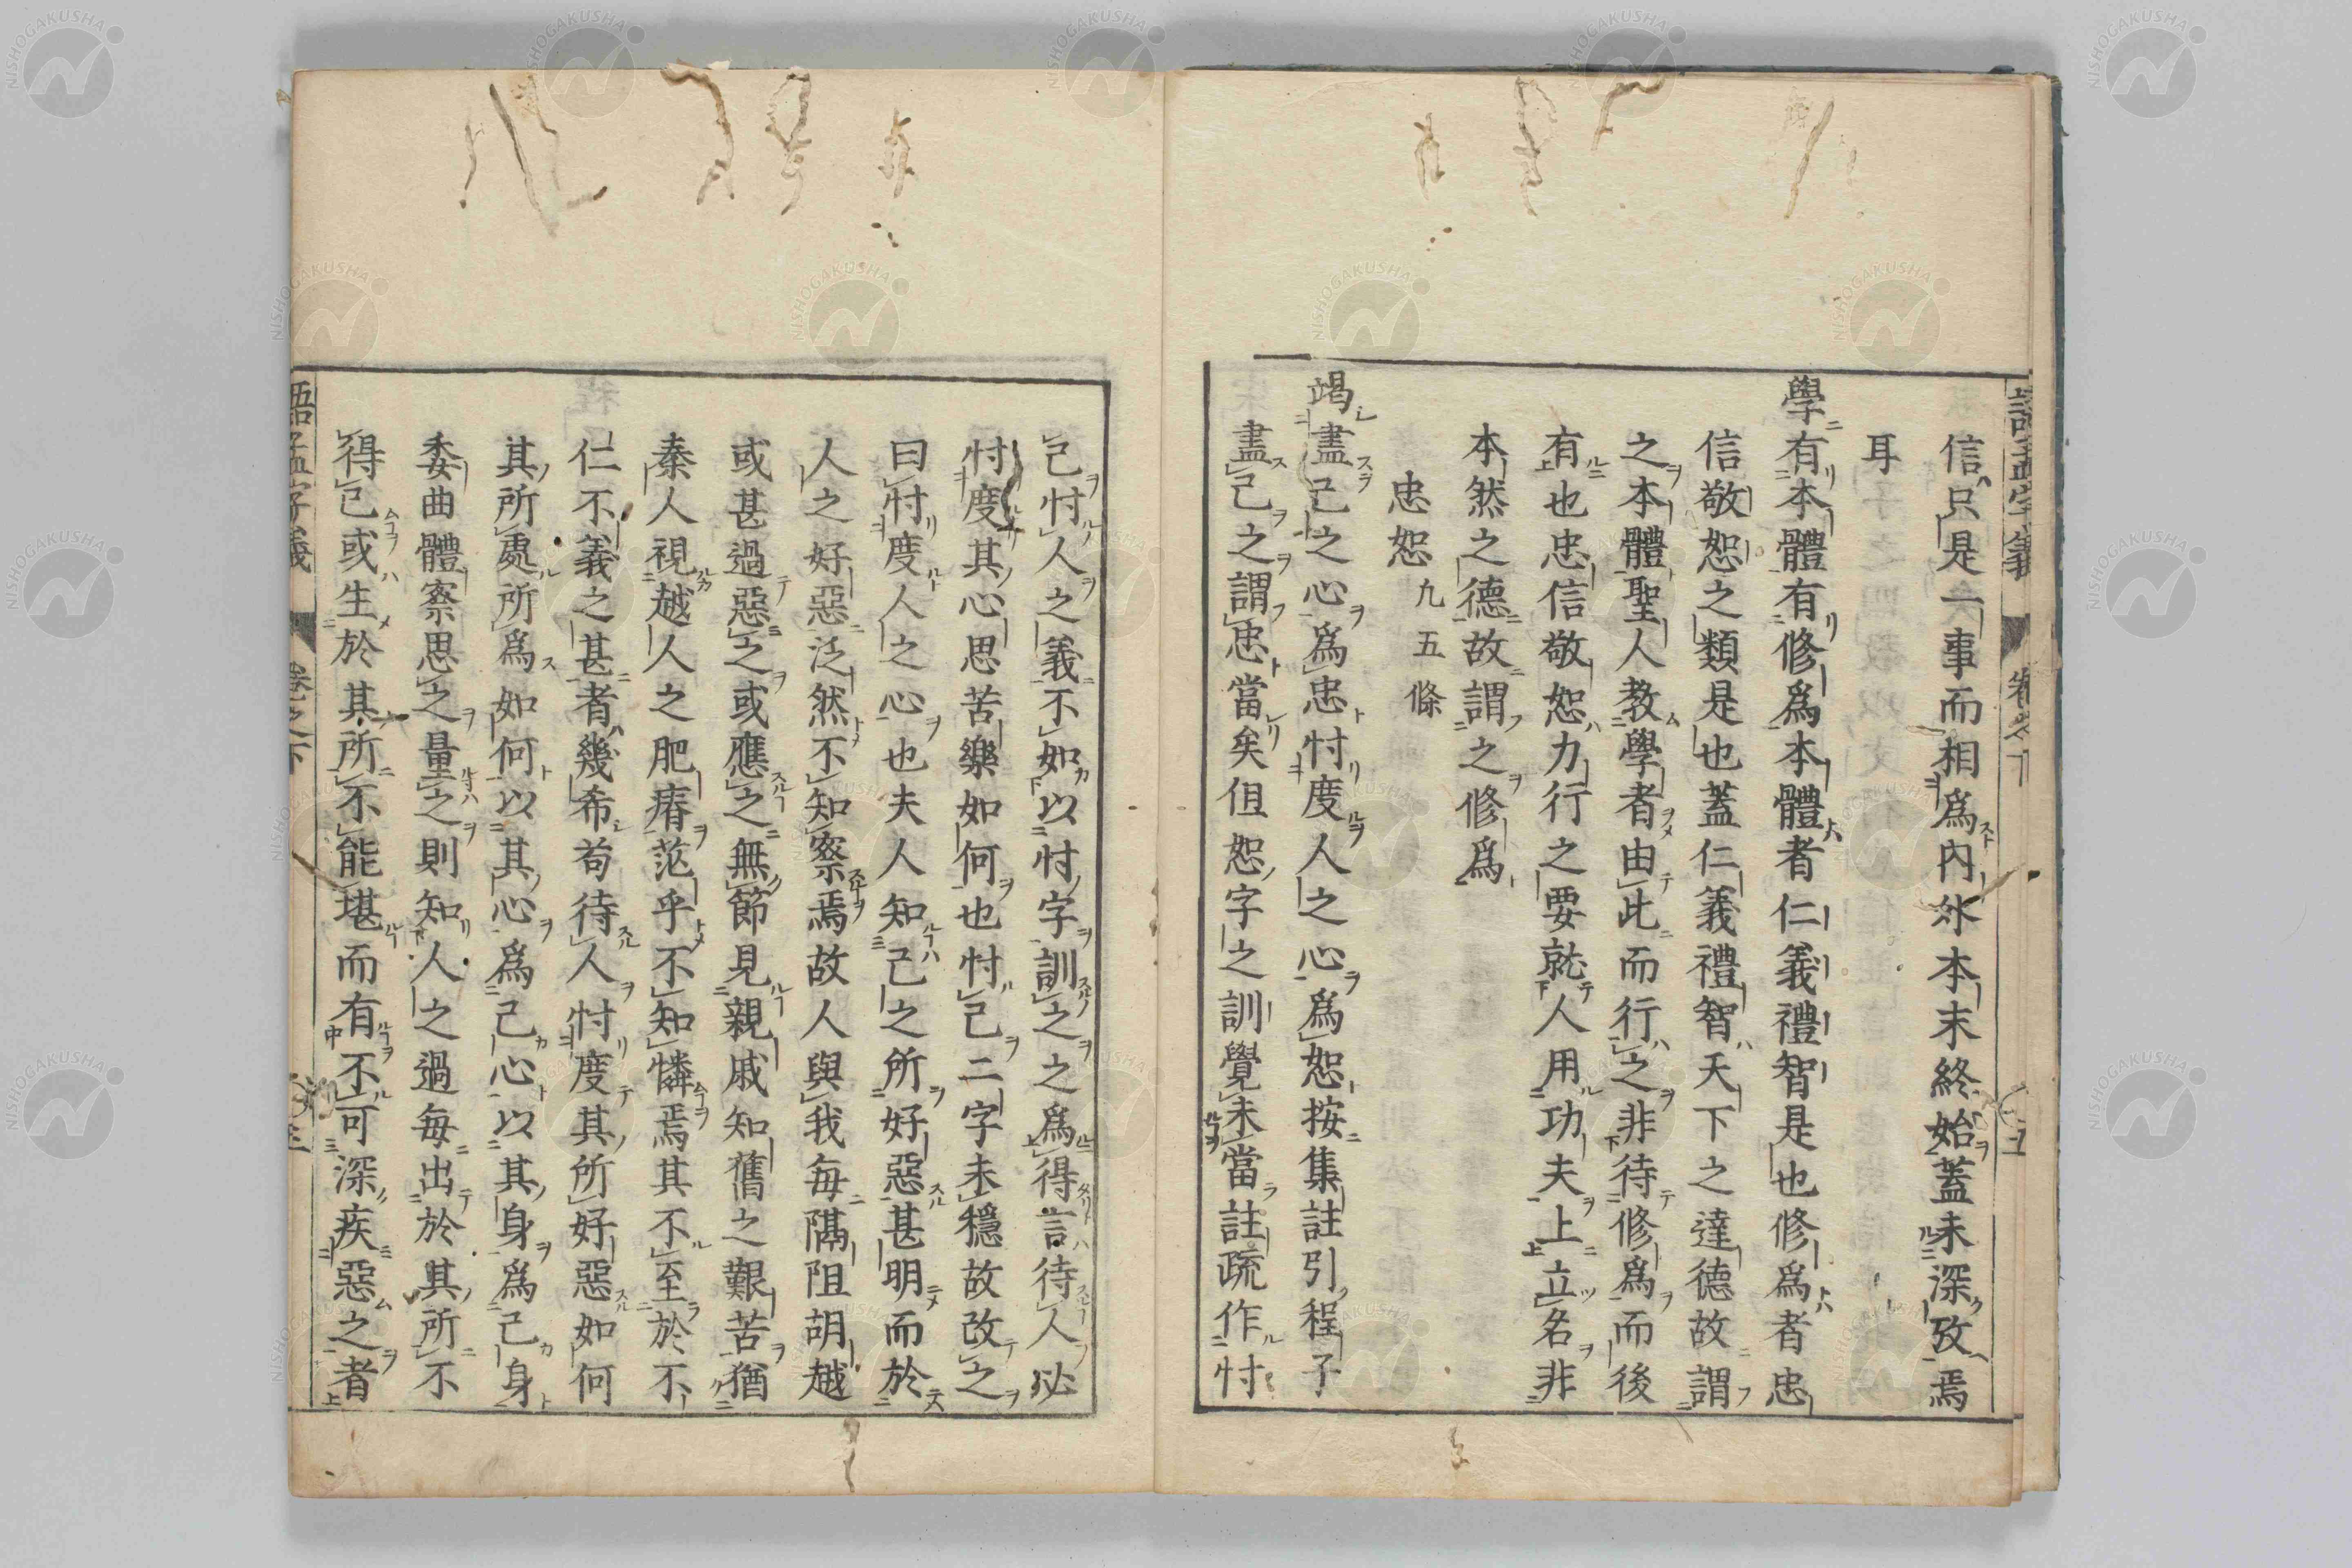 信只是一事而相爲內外本末終始蓋未深攷焉
耳
學有本體有修爲本體者仁義禮智是也修爲者忠
信敬恕之類是也蓋仁義禮智天下之達德故謂
之本體聖人教學者由此而行之非待修爲而後
有也忠信敬恕力行之要就人用功夫上立名非
本然之德故謂之修爲
忠恕 凡五條
竭盡己之心爲忠忖度人之心爲恕按集註引程子
盡己之謂忠當矣但恕字之訓覺未當註疏作忖
己忖人之義不如以忖字訓之之爲得言待人必
忖度其心思苦樂如何也忖己二字未穩故改之
曰忖度人之心也夫人知己之所好惡甚明而於
人之好惡泛然不知察焉故人與我每隔阻胡越
或甚過惡之或應之無節見親戚知舊之艱苦猶
秦人視越人之肥瘠茫乎不知憐焉其不至於不
仁不義之甚者幾希苟待人忖度其所好惡如何
其所處所爲如何以其心爲己心以其身爲己身
委曲體察思之量之則知人之過每出於其所不
得已或生於其所不能堪而有不可深疾惡之者
語孟字義 卷之下